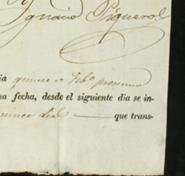 Ignacio Figueroa
ia quince de Feb.º proximo
na fecha, desde el siguiente dia se in-
quince dias que trans-